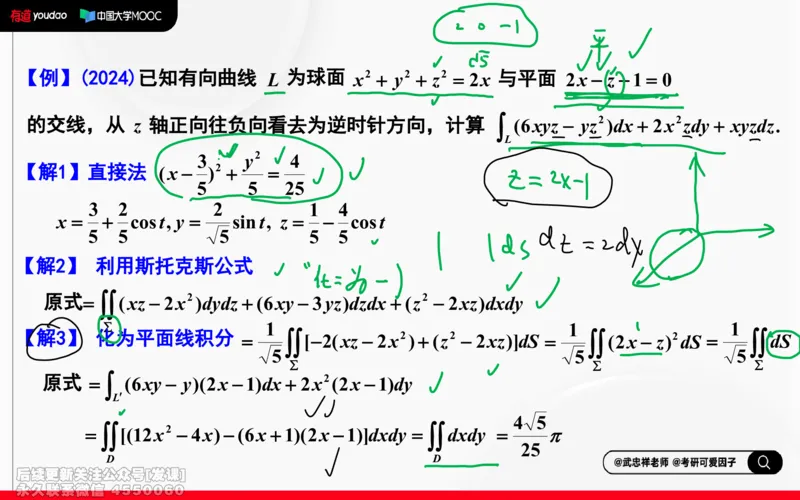 有道 youdao 中国大学MOOC
2 0 -1
平
√5
【例】(2024)已知有向曲线 L 为球面 x² + y² + z² = 2x 与平面 2x − z − 1 = 0
的交线，从 z 轴正向往负向看去为逆时针方向，计算 ∫_L (6xyz − yz²)dx + 2x²zdy + xyzdz.
【解1】直接法 (x − 3/5)² + y²/5 = 4/25
z = 2x-1
x = 3/5 + 2/5 cos t, y = 2/√5 sin t, z = 1/5 + 4/5 cos t
dz = 2dx
【解2】 利用斯托克斯公式
原式 = ∬_Σ (xz − 2x²)dydz + (6xy − 3yz)dzdx + (z² − 2xz)dxdy
= 1/√5 ∬_Σ [−2(xz − 2x²) + (z² − 2xz)]dS = 1/√5 ∬_Σ (2x − z)² dS = 1/√5 ∬_Σ dS
【解3】 化为平面线积分
原式 = ∫_L′ (6xy − y)(2x − 1)dx + 2x²(2x − 1)dy
= ∬_D [(12x² − 4x) − (6x + 1)(2x − 1)]dxdy = ∬_D dxdy = 4√5/25 π
@武忠祥老师 @考研可爱因子
后续更新关注公众号[发课]
永久联系微信 4550060